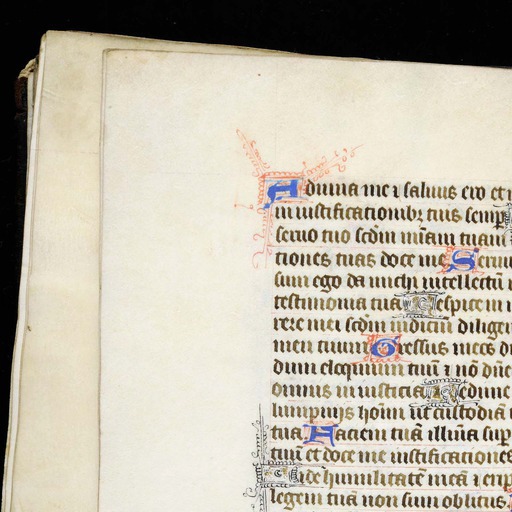 Adiuua me ⁊ saluus ero et
in iustificationibꝫ tuis semꝑ
seruo tuo scd̄m mīam tuam
tiones tuas doce me Seruu
sum ego da michi intellectū
testimonia tua Aspice in
rere mei scd̄m iudiciū dilige
men tuum Gressus meos di
dum eloquium tuū ⁊ nō dn̄e
omnis in iniusticia Redime
lumpnijs hoīm ut custodiā
tua Faciem tuā illūia sup
tuū et doce me iustificationes
Vide humilitatē meā ⁊ erip
legem tuā non sum oblitus